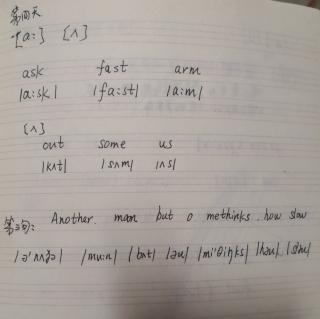 第四天
[a:] [ʌ]
ask fast arm
|a:sk| |fa:st| |a:m|
[ʌ]
out some us
|kʌt| |sʌm| |ʌs|
第三句: Another. man but o methinks, how slow
|ə'nʌðə| |mu:n| |bʌt| |əu| |mi'θiŋks| |hau| |sləu|